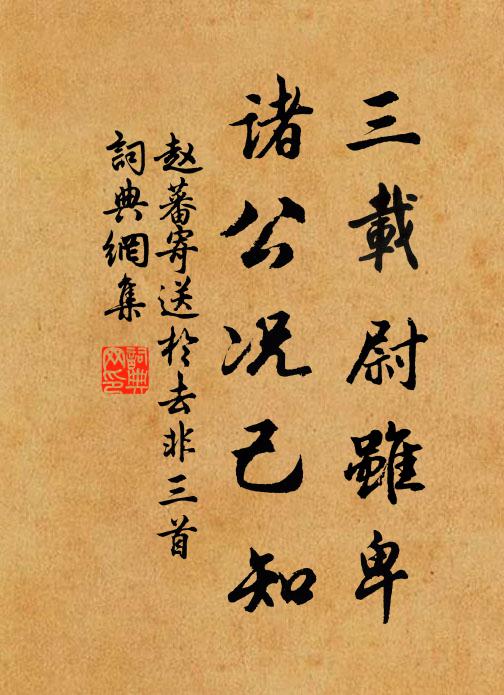 三載尉雖卑
诸公况已知
赵蕃寄送於去非三首
詞典網集
詞典網印